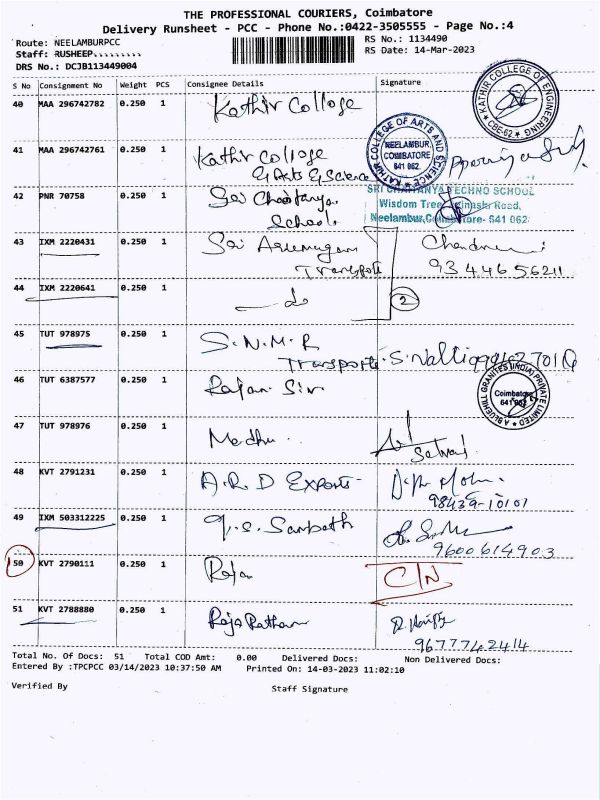 THE PROFESSIONAL COURIERS, Coimbatore
Delivery Runsheet - PCC - Phone No.:0422-3505555 - Page No.:4
Route: NEELAMBURPCC
RS No.: 1134490
Staff: RUSHEEP.........
RS Date: 14-Mar-2023
DRS No.: DCJB113449004
S No Consignment No Weight PCS Consignee Details Signature
40 MAA 296742782 0.250 1 Kathir College
KATHIR COLLEGE OF ENGINEERING
CBE-62
41 MAA 296742761 0.250 1 Kathir College
of Arts & Science
KATHIR COLLEGE OF ARTS AND SCIENCE
NEELAMBUR,
COIMBATORE
641 062
42 PNR 70758 0.250 1 Sri Chaitanya
School
SRI CHAITANYA TECHNO SCHOOL
Wisdom Tree, Avinashi Road,
Neelambur, Coimbatore- 641 062
43 IXM 2220431 0.250 1 Sri Arumugam
Transport
9344656211
44 IXM 2220641 0.250 1 - do
2
45 TUT 978975 0.250 1 S.N.M.R
Transports. S. Valli
46 TUT 6387577 0.250 1 Rajan Sir
BLUEHILL GRANITES (INDIA) PRIVATE LIMITED
Coimbatore
641 062
47 TUT 978976 0.250 1 Madhu
48 KVT 2791231 0.250 1 A.R.D Exports
98439-10101
49 IXM 503312225 0.250 1 Sampath
9600614903
50 KVT 2790111 0.250 1 Rajan
C/N
51 KVT 2788880 0.250 1 Raja Ratham
9677742414
Total No. Of Docs: 51 Total COD Amt: 0.00 Delivered Docs: Non Delivered Docs:
Entered By :TPCPCC 03/14/2023 10:37:50 AM Printed On: 14-03-2023 11:02:10
Verified By
Staff Signature